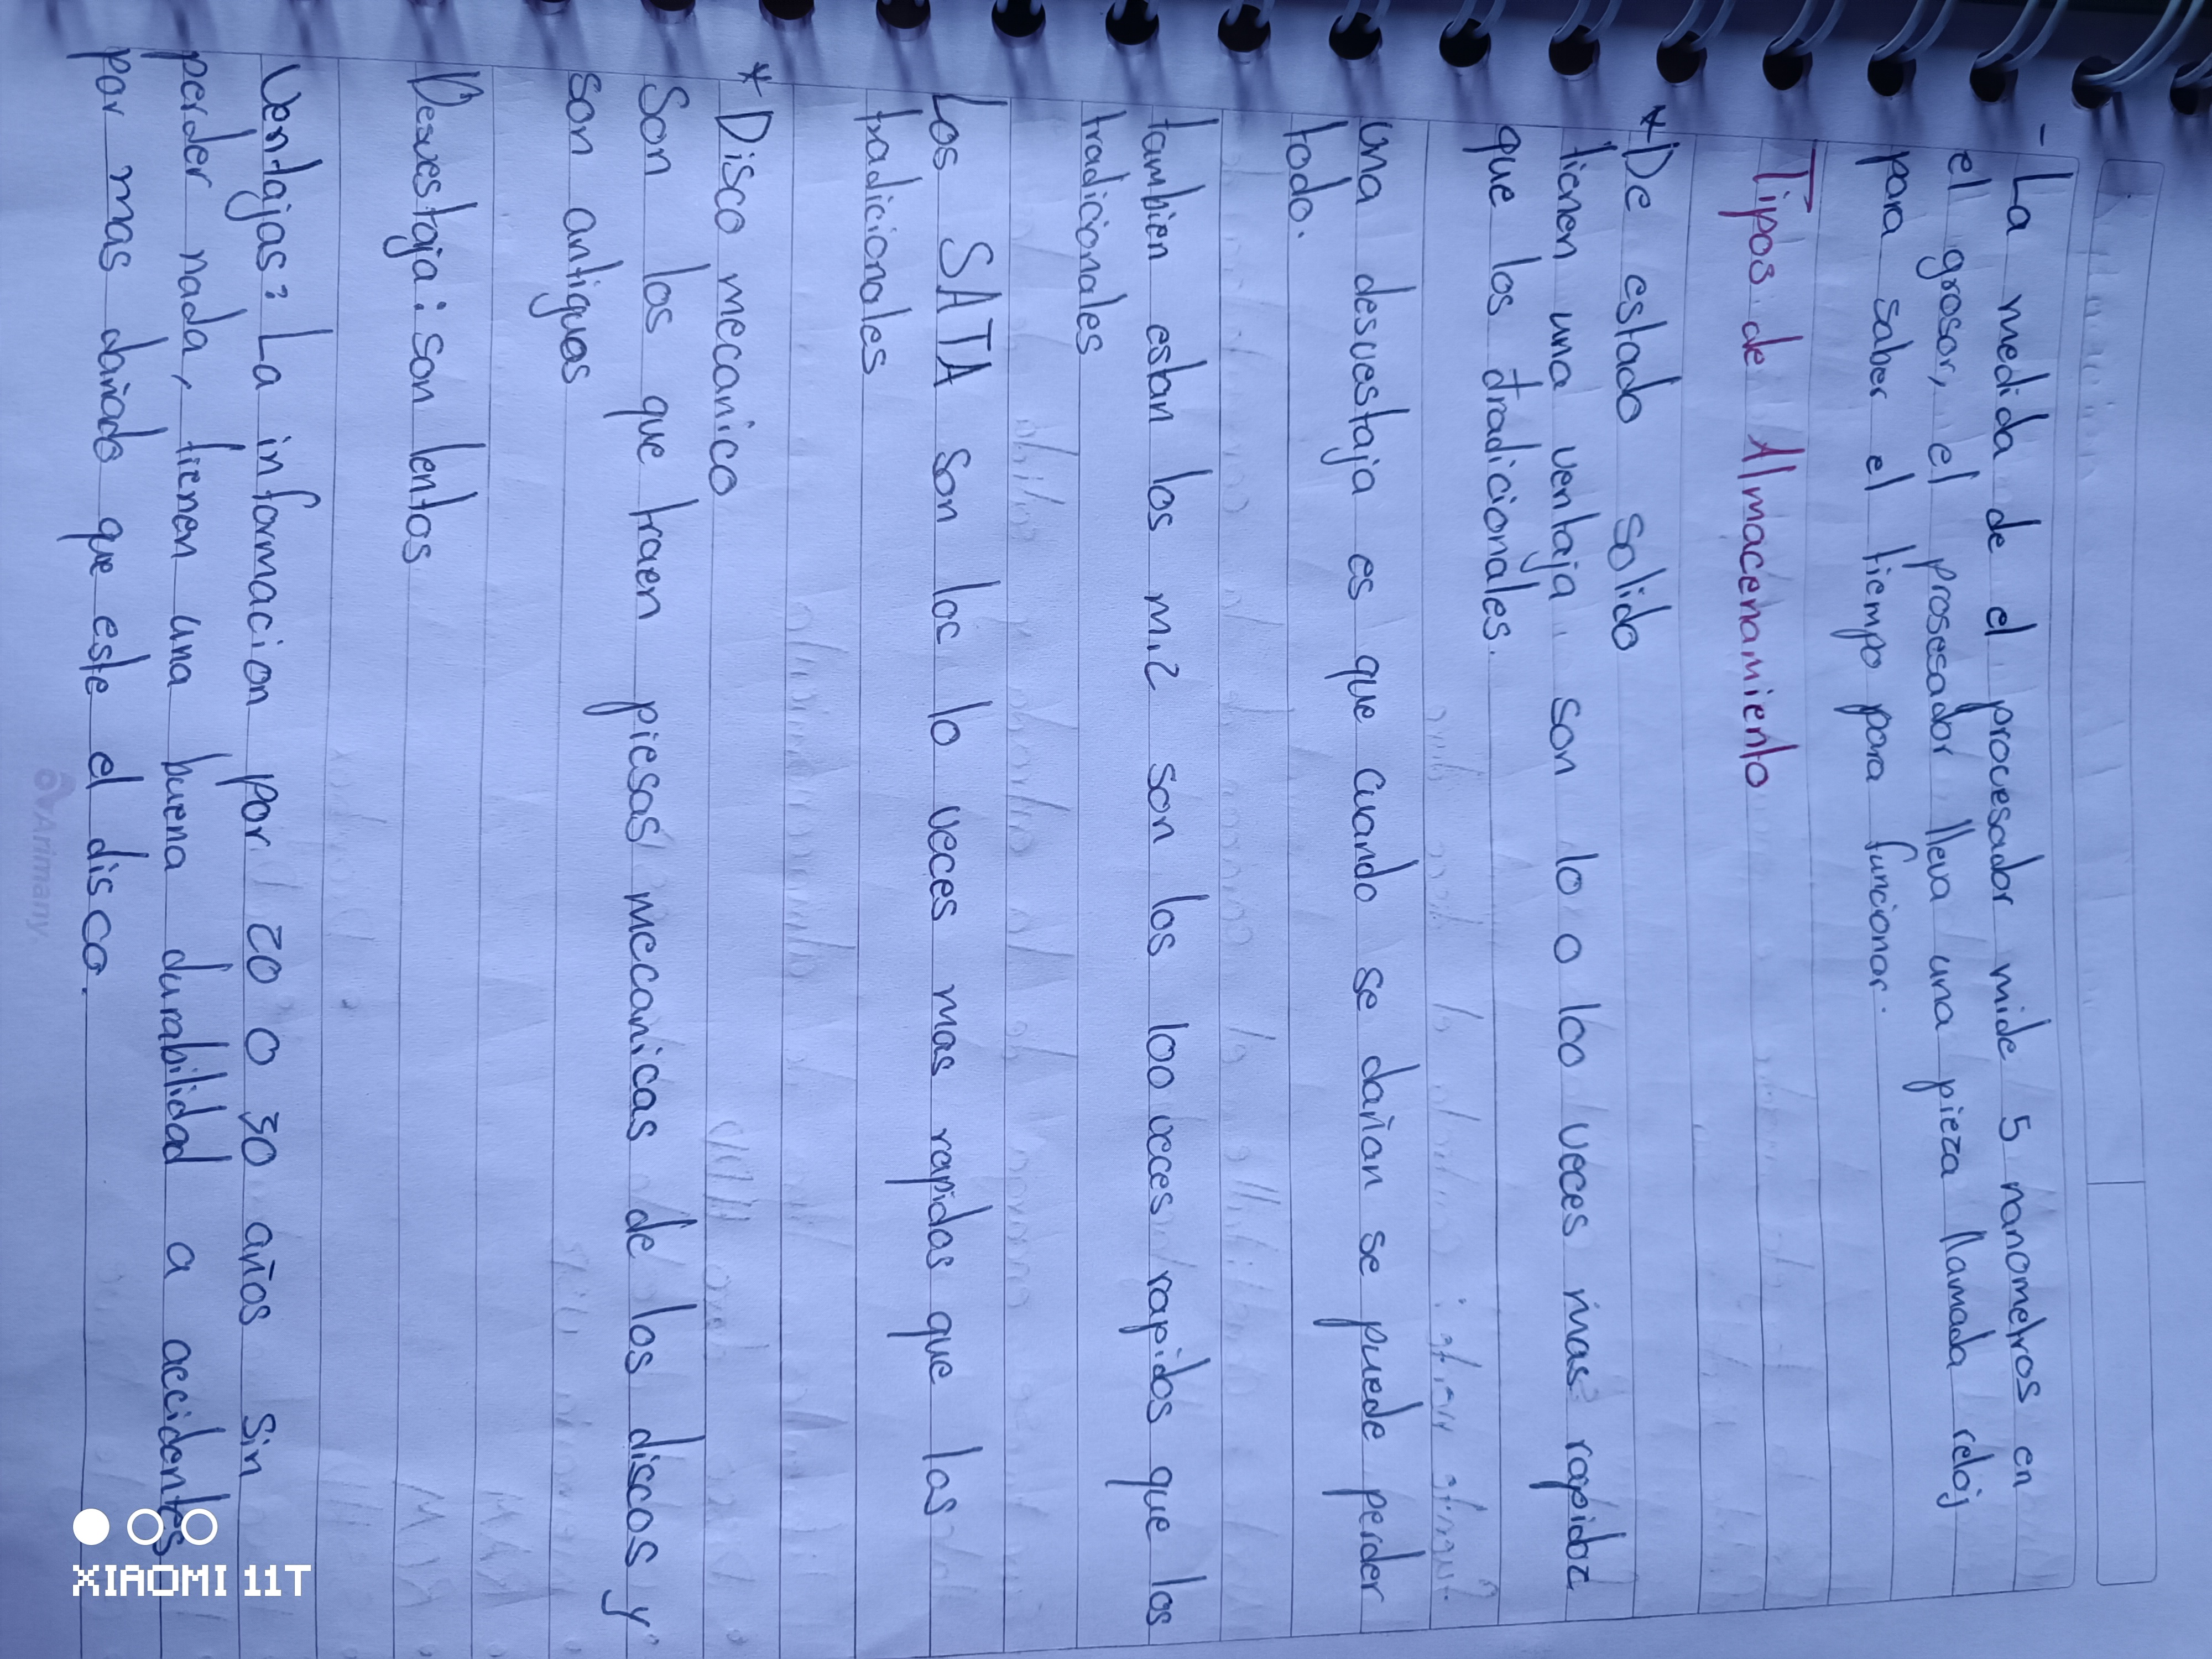 - La medida de el procesador mide 5 nanometros en
el grosor, el prosesador lleva una pieza llamada reloj
para saber el tiempo para funcionar.
Tipos de Almacenamiento
* De estado solido
tienen una ventaja, son 10 o 100 veces mas rapidoz
que los tradicionales.
Una desvestaja es que cuando se dañan se puede perder
todo.
tambien estan los m.2 son los 100 veces rapidos que los
tradicionales
Los SATA son los 10 veces mas rapidos que los
tradicionales
* Disco mecanico
Son los que traen piesas mecanicas de los discos y
son antiguos
Desvestaja: son lentos
Ventajas: La informacion por 20 o 30 años sin
perder nada, tienen una buena durabilidad a accidentes
por mas dañado que este el disco.
Arimany.
XIAOMI 11T